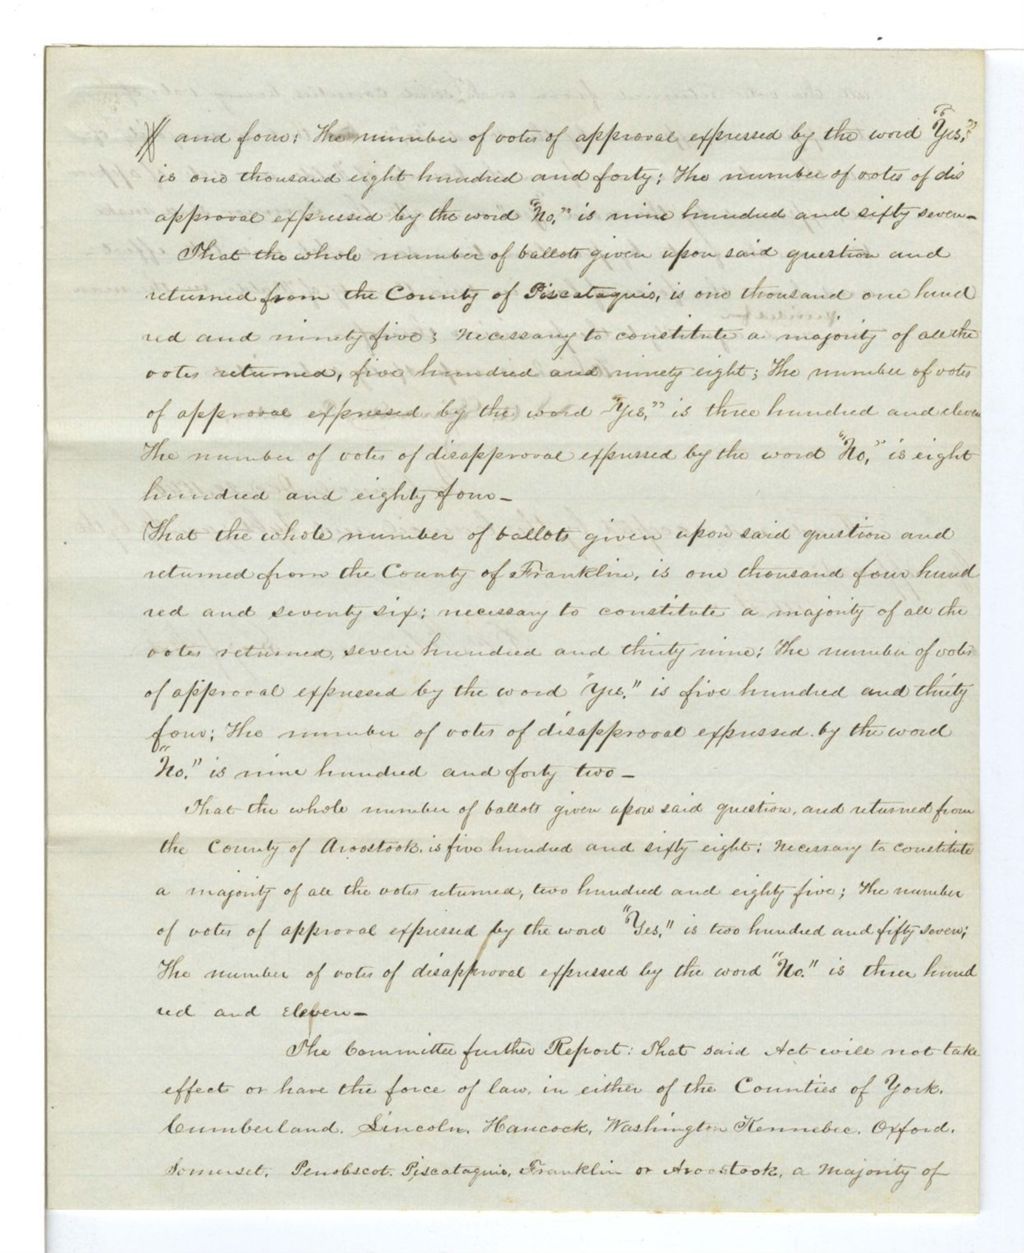 and four; The number of votes of approval expressed by the word "Yes,"
is one thousand eight hundred and forty; The number of votes of dis
approval expressed by the word "No," is nine hundred and sixty seven—
That the whole number of ballots given upon said question and
returned from the County of Piscataquis, is one thousand one hund
red and ninety five; necessary to constitute a majority of all the
votes returned, five hundred and ninety eight; The number of votes
of approval expressed by the word "Yes," is three hundred and eleven
The number of votes of disapproval expressed by the word "No," is eight
hundred and eighty four—
That the whole number of ballots given upon said question and
returned from the County of Franklin, is one thousand four hund
red and seventy six; necessary to constitute a majority of all the
votes returned, seven hundred and thirty nine; The number of votes
of approval expressed by the word "Yes." is five hundred and thirty
four; The number of votes of disapproval expressed by the word
"No." is nine hundred and forty two—
That the whole number of ballots given upon said question, and returned from
the County of Aroostook, is five hundred and sixty eight; necessary to constitute
a majority of all the votes returned, two hundred and eighty five; The number
of votes of approval expressed by the word "Yes," is two hundred and fifty seven;
The number of votes of disapproval expressed by the word "No." is three hund
red and eleven—
The Committee further Report: That said Act will not take
effect or have the force of law, in either of the Counties of York,
Cumberland, Lincoln, Hancock, Washington Kennebec, Oxford,
Somerset, Penobscot, Piscataquis, Franklin or Aroostook, a majority of